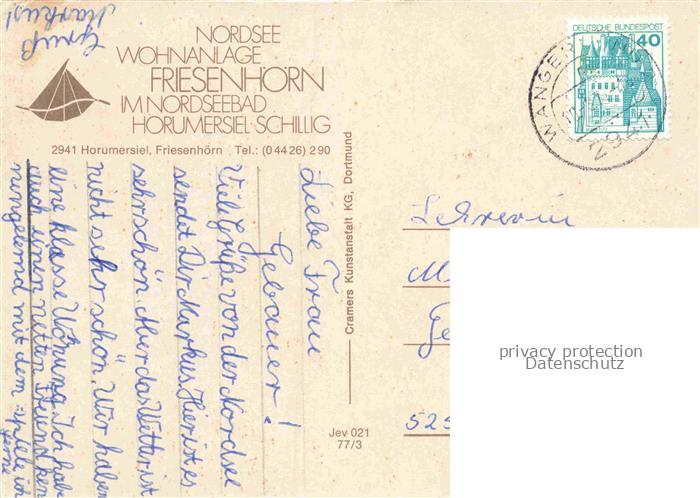 NORDSEE
WOHNANLAGE
FRIESENHÖRN
IM NORDSEEBAD
HORUMERSIEL-SCHILLIG
2941 Horumersiel, Friesenhörn Tel.: (0 44 26) 2 90
Liebe Frau
Gebauer!
Viele Grüße von der Nordsee
sendet Dir Markus. Hier ist es
sehr schön. Aber das Wetter ist
nicht sehr schön. Wir haben
eine klasse Wonung. Ich habe
auch einen netten Freund ken
nengelernd mit dem spiele ich
gerne
Gruß
Markus!
Cramers Kunstanstalt KG, Dortmund
Jev 021
77/3
DEUTSCHE BUNDESPOST
40
WANGER
2941
525
privacy protection
Datenschutz